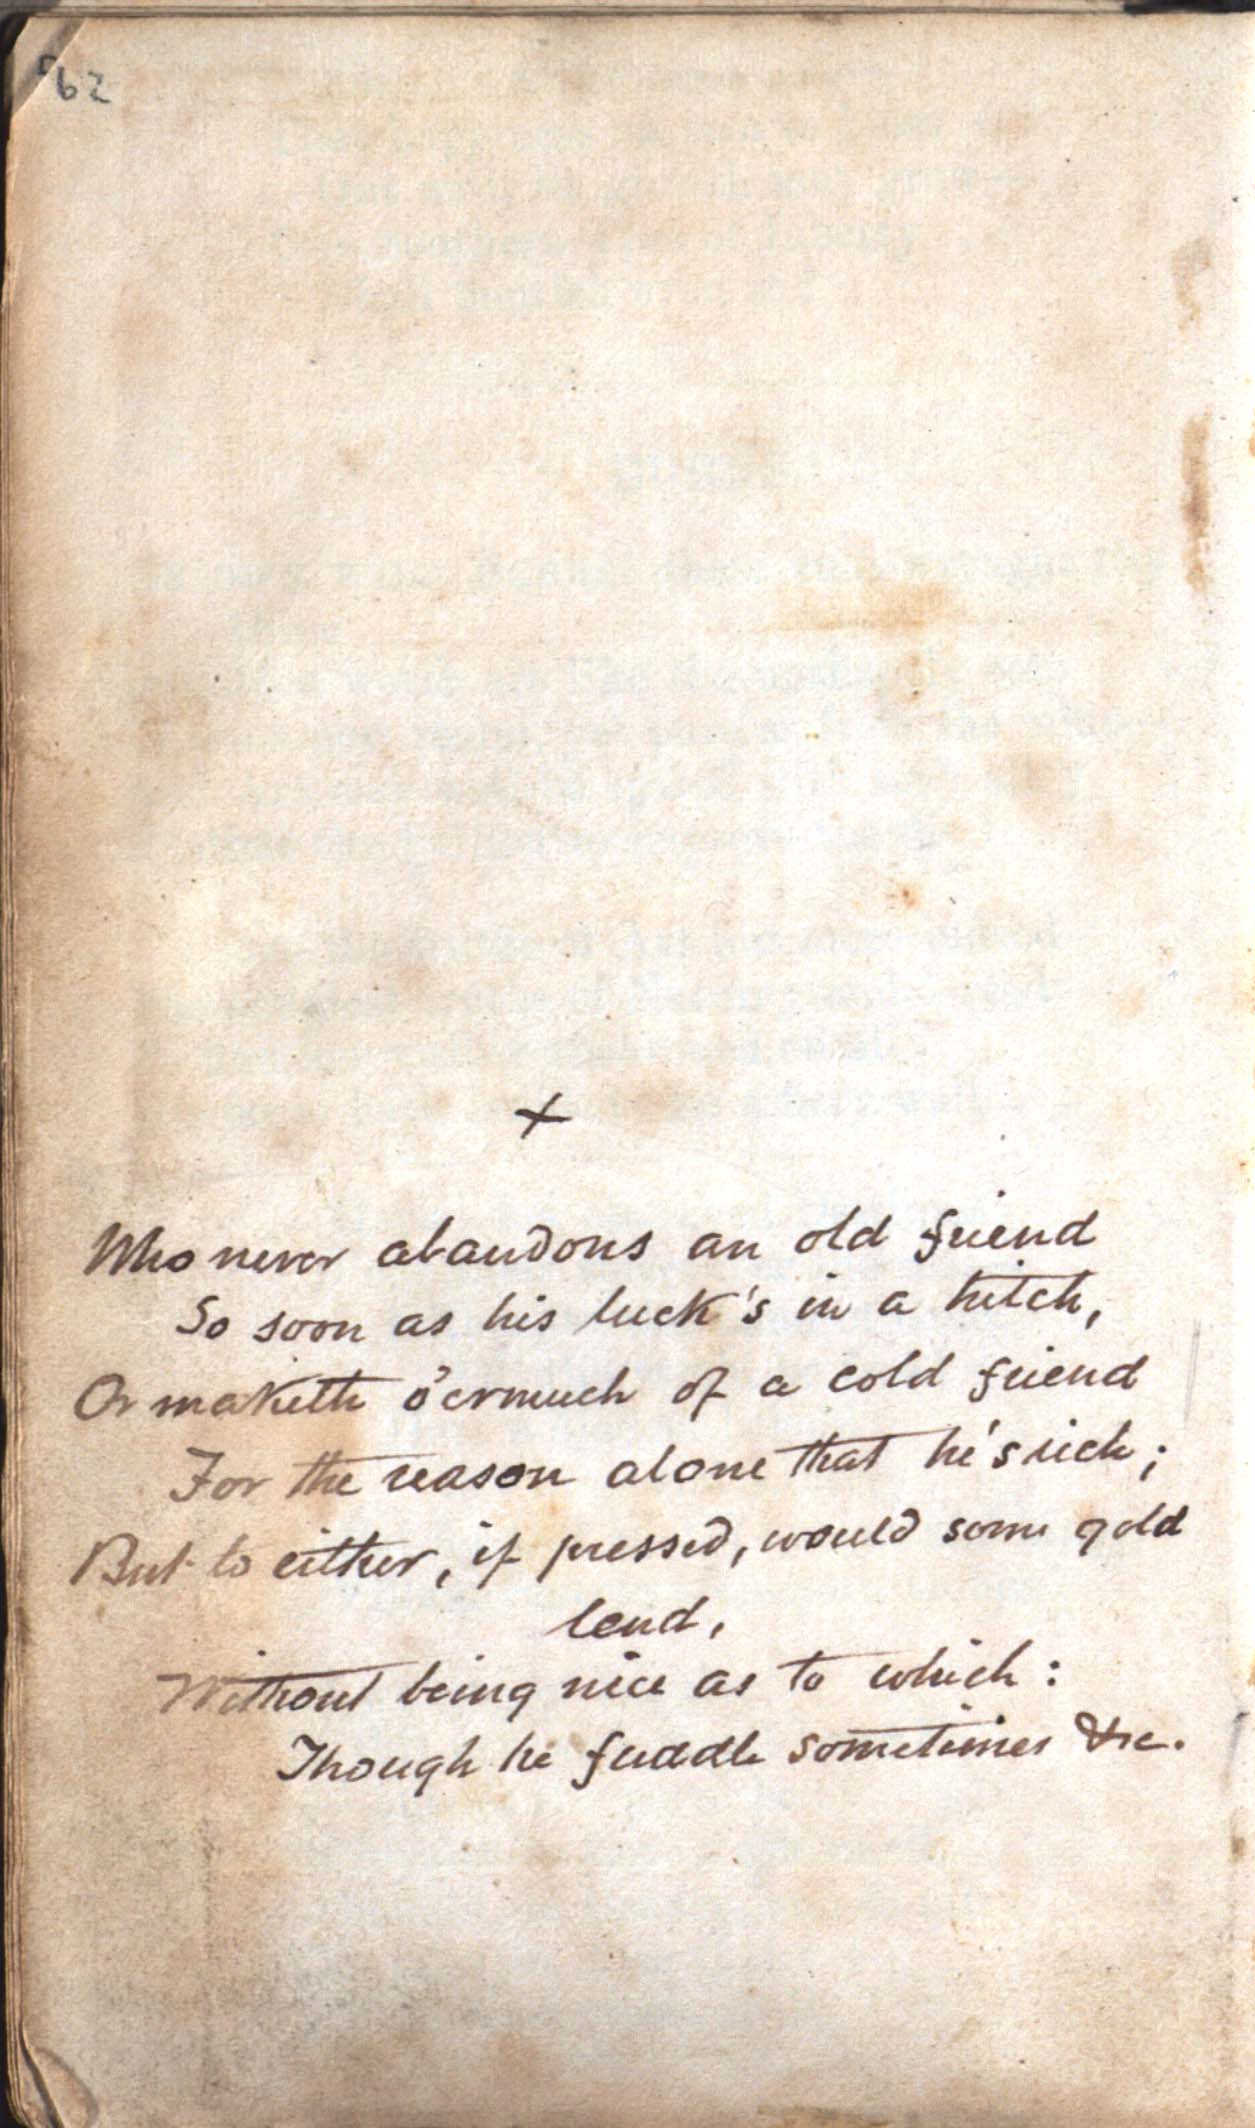 62
+
Who never abandons an old friend
So soon as his luck's in a hitch,
Or maketh o'ermuch of a cold friend
For the reason alone that he's rich;
But to either, if pressed, would some gold
lend,
Without being nice as to which:
Though he fuddle sometimes &c.